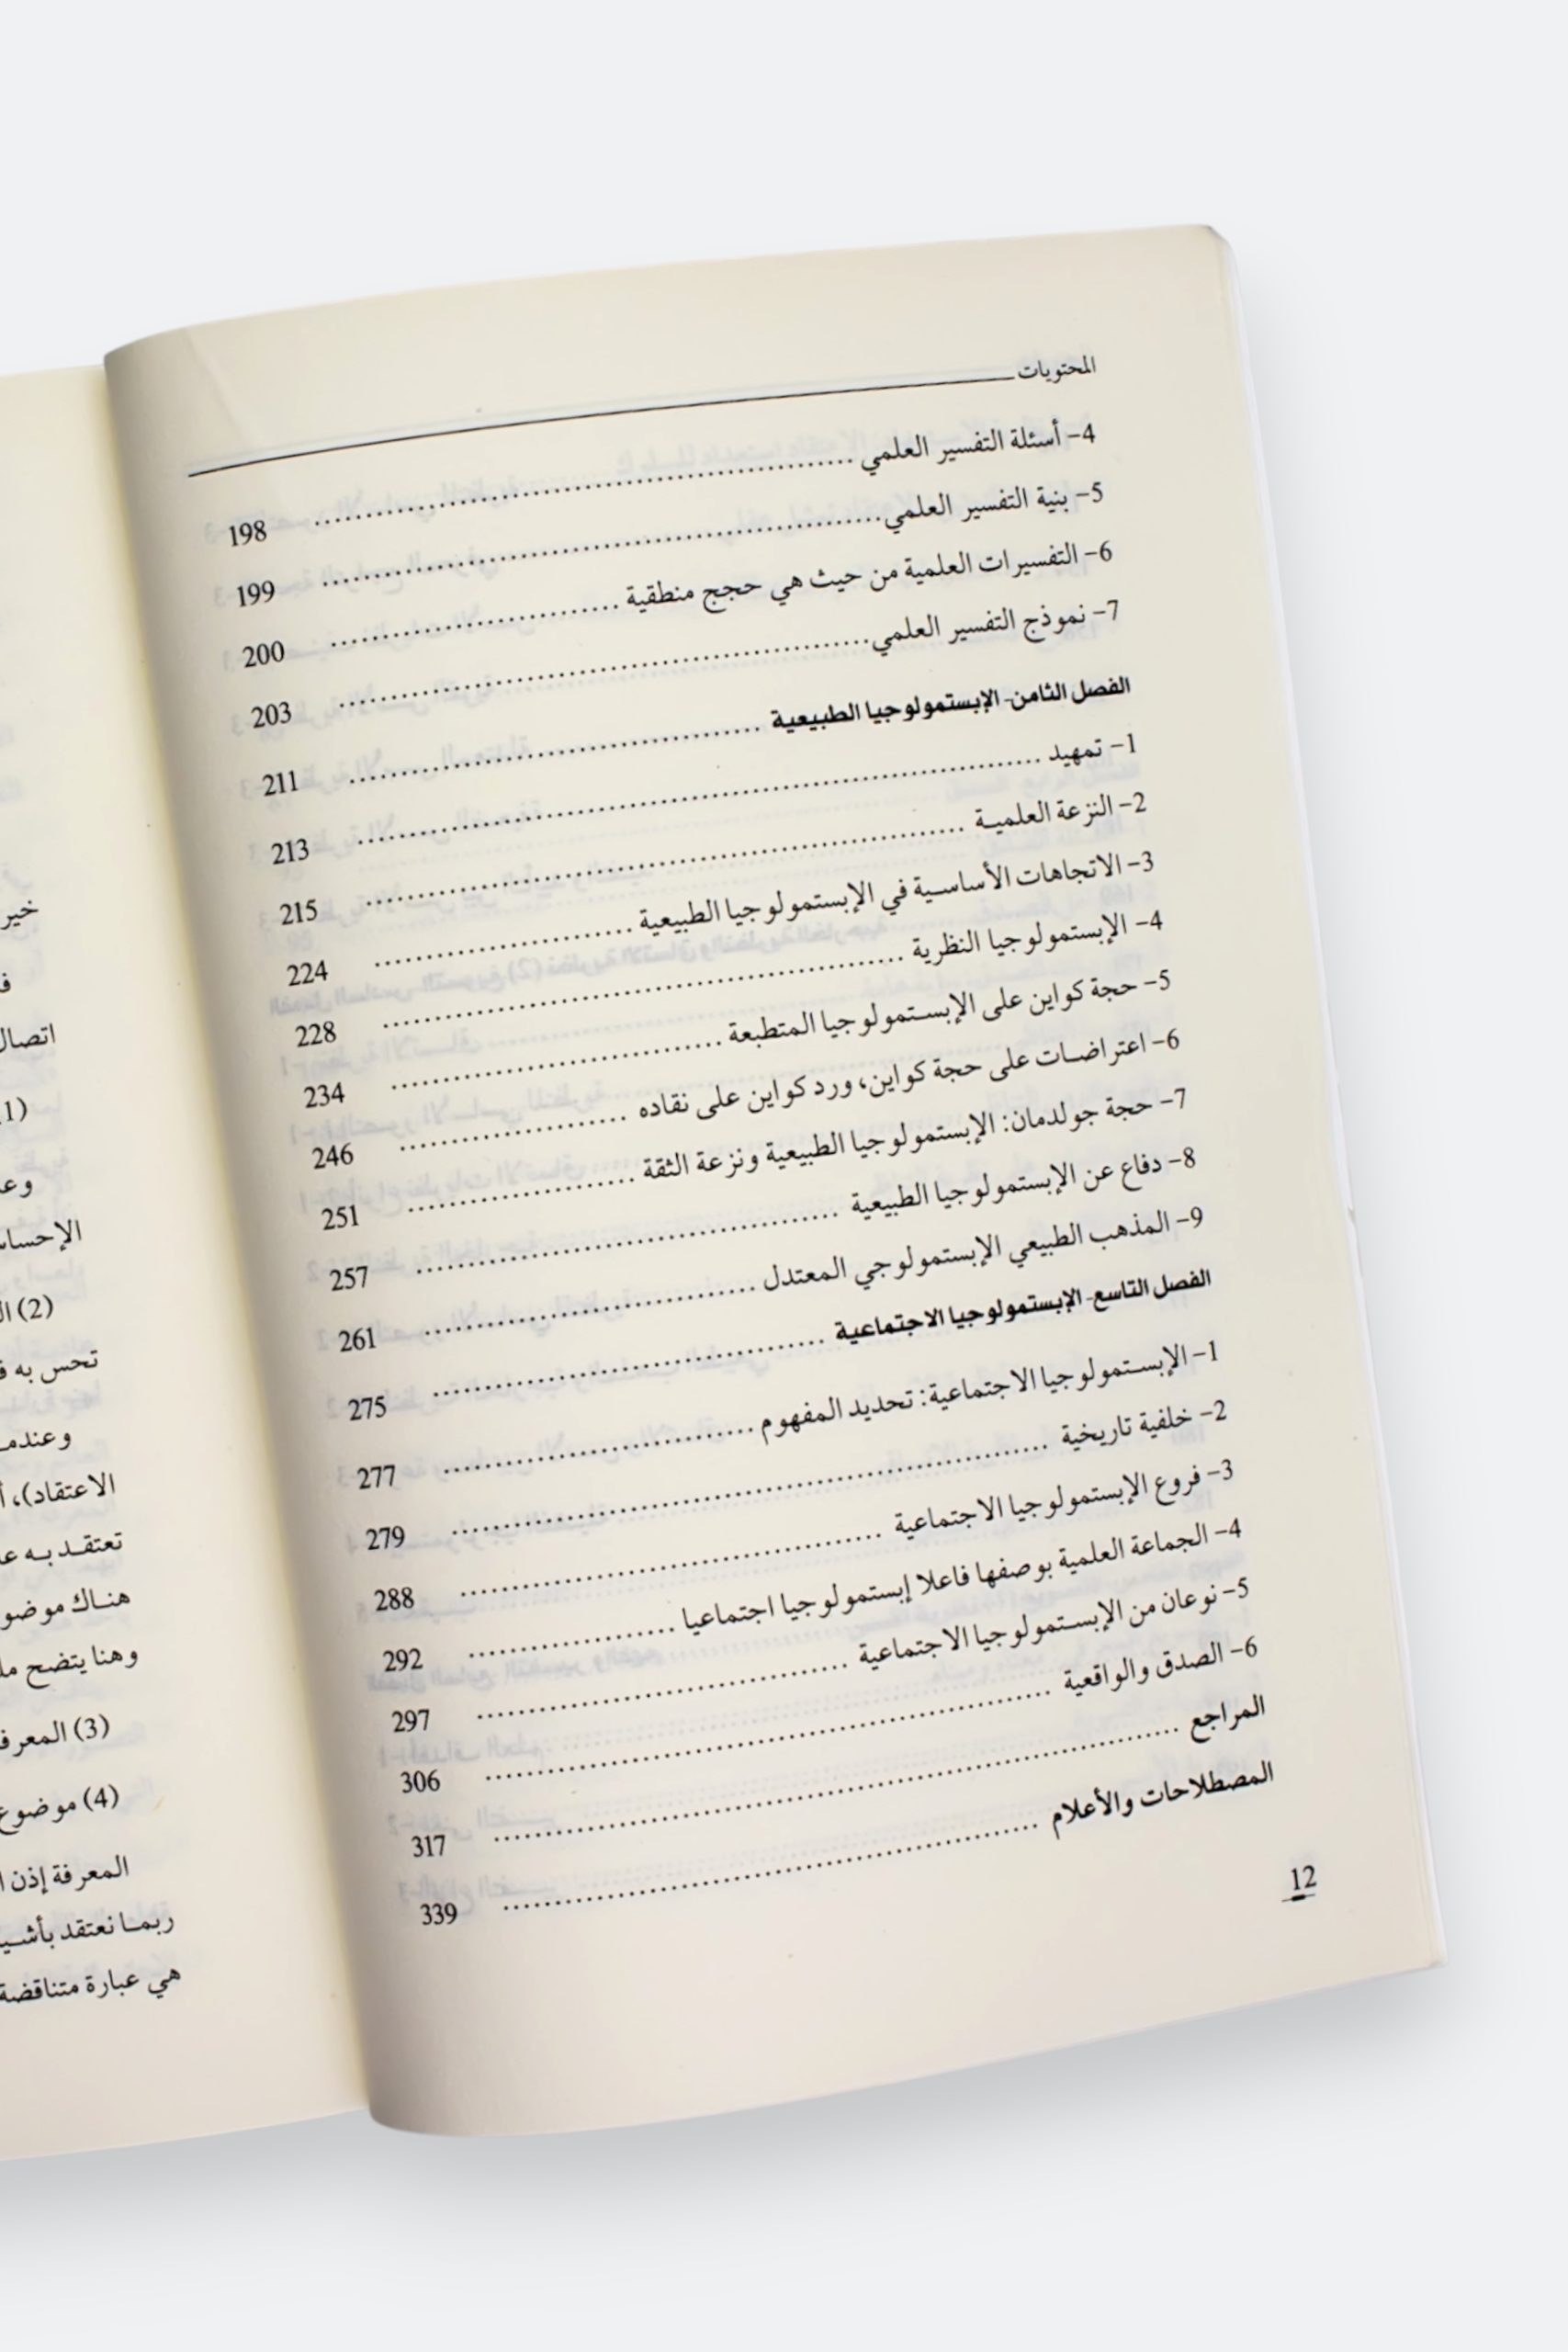 المحتويات
4- أسئلة التفسير العلمي ........ 198
5- بنية التفسير العلمي ........ 199
6- التفسيرات العلمية من حيث هي حجج منطقية ........ 200
7- نموذج التفسير العلمي ........ 203
الفصل الثامن- الإبستمولوجيا الطبيعية ........ 211
1- تمهيد ........ 213
2- النزعة العلمية ........ 215
3- الاتجاهات الأساسية في الإبستمولوجيا الطبيعية ........ 224
4- الإبستمولوجيا النظرية ........ 228
5- حجة كواين على الإبستمولوجيا المتطبعة ........ 234
6- اعتراضات على حجة كواين، ورد كواين على نقاده ........ 246
7- حجة جولدمان: الإبستمولوجيا الطبيعية ونزعة الثقة ........ 251
8- دفاع عن الإبستمولوجيا الطبيعية ........ 257
9- المذهب الطبيعي الإبستمولوجي المعتدل ........ 261
الفصل التاسع- الإبستمولوجيا الاجتماعية ........ 275
1- الإبستمولوجيا الاجتماعية: تحديد المفهوم ........ 277
2- خلفية تاريخية ........ 279
3- فروع الإبستمولوجيا الاجتماعية ........ 288
4- الجماعة العلمية بوصفها فاعلا إبستمولوجيا اجتماعيا ........ 292
5- نوعان من الإبستمولوجيا الاجتماعية ........ 297
6- الصدق والواقعية ........ 306
المراجع ........ 317
المصطلحات والأعلام ........ 339
12
خير
اتصال
(1)
الإحساس
(2)
تحس به
وعندما
الاعتقاد)،
تعتقد به
هناك
وهنا يتضح
(3) المعرفة
(4) موضوع
المعرفة إذن
ربما نعتقد
هي عبارة متناقضة